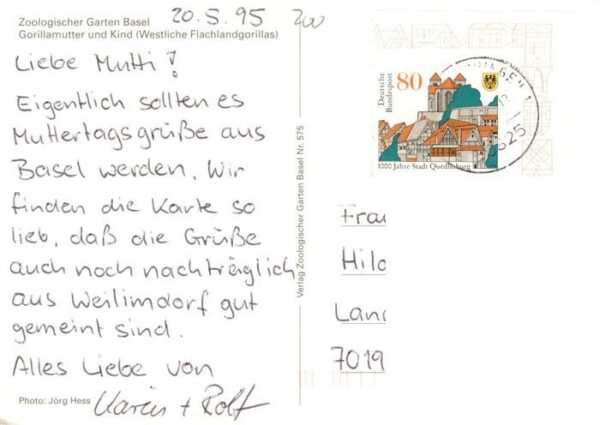 Zoologischer Garten Basel
Gorillamutter und Kind (Westliche Flachlandgorillas)
20.5.95 Zoo
Liebe Mutti!
Eigentlich sollten es
Muttertagsgrüße aus
Basel werden. Wir
finden die Karte so
lieb, daß die Grüße
auch noch nachträglich
aus Weilimdorf gut
gemeint sind.
Alles Liebe von
Karin + Rolf
Photo: Jörg Hess
Verlag Zoologischer Garten Basel Nr. 575
Deutsche
Bundespost
80
1000 Jahre Stadt Quedlinburg
525
Frau
Hild
Land
7019